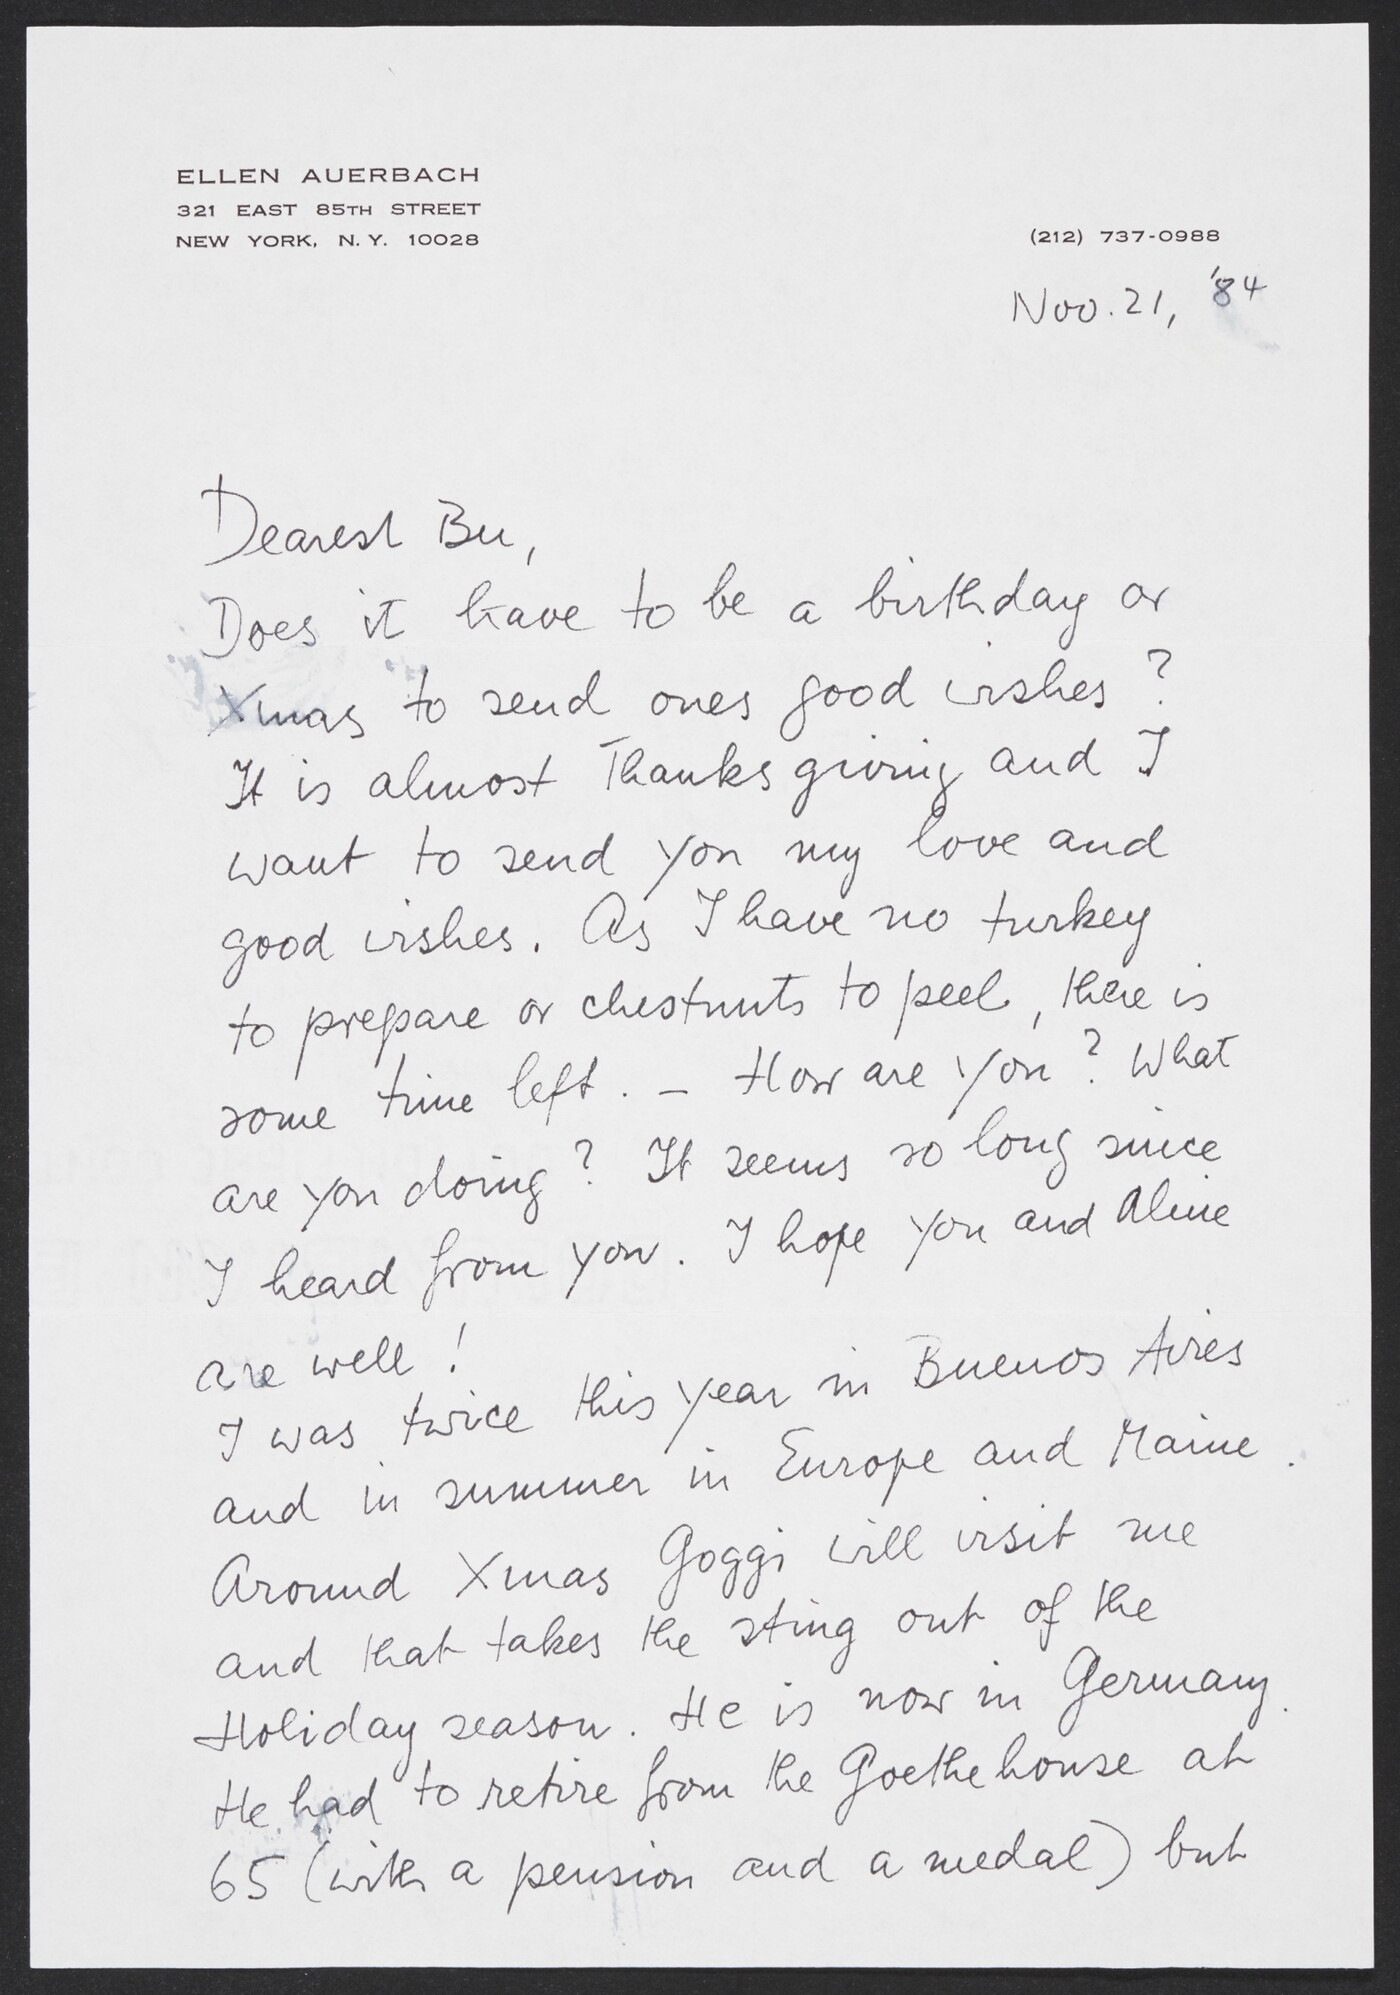 ELLEN AUERBACH
321 EAST 85TH STREET
NEW YORK, N.Y. 10028
(212) 737-0988
Nov. 21, '84
Dearest Bu,
Does it have to be a birthday or
Xmas to send ones good wishes?
It is almost Thanksgiving and I
want to send you my love and
good wishes. As I have no turkey
to prepare or chestnuts to peel, there is
some time left. – How are you? What
are you doing? It seems so long since
I heard from you. I hope you and Aline
are well!
I was twice this year in Buenos Aires
and in summer in Europe and Maine.
Around Xmas Goggi will visit me
and that takes the sting out of the
Holiday season. He is now in Germany.
He had to retire from the Goethehouse at
65 (with a pension and a medal) but